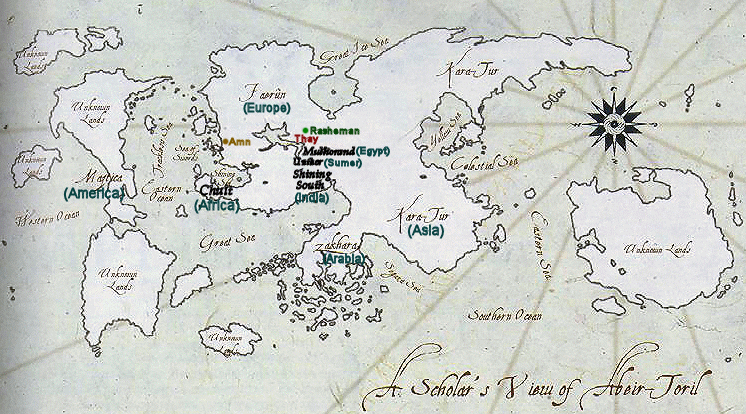 Unknown
Lands
Great Ice Sea
Kara-Tur
Faerûn
(Europe)
Unknown
Lands
Rasheman
Thay
Amn
Mulhorand (Egypt)
Unther (Sumer)
Shining
South
(India)
Yellow Sea
Celestial Sea
Trackless Sea
Sea of
Swords
Shining
Sea
Chult
(Africa)
Unknown
Lands
Maztica
(America)
Eastern
Ocean
Western Ocean
Great Sea
Kara-Tur
(Asia)
Zakhara
(Arabia)
Eastern Sea
Unknown Lands
Unknown
Lands
Southern Ocean
Unknown
Lands
A Scholar's View of Abeir-Toril